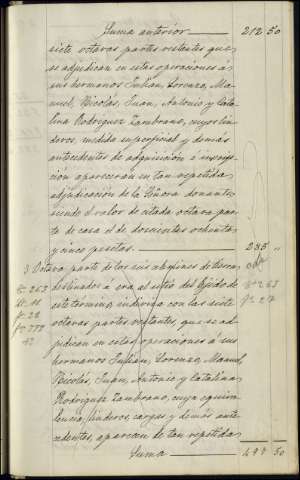 Suma anterior 212 50
siete octavas partes restantes que
se adjudican en estas operaciones á
sus hermanos Julian, Lorenzo, Ma-
nuel, Nicolás, Juan, Antonio y Cata-
lina Rodriguez Zambrano, cuyos lin-
deros, medida superficial y demás
antecedentes de adquisición é inscrip-
ción aparecerán en tan repetida
adjudicación de la Señora donante
siendo el valor de citada octava par-
te de casa el de doscientas ochenta
y cinco pesetas. 285 "
3 Octava parte de los seis
destinados á era, al sitio del Egido de
este término, indivisa con las siete
octavas partes restantes, que se ad-
judican en estas operaciones á sus
hermanos Julián, Lorenzo, Manuel,
Nicolás, Juan, Antonio y Catalina
Rodriguez Zambrano, cuya equiva-
lencia, linderos, cargas y demás ante-
cedentes, aparecen de tan repetida
Suma 497 50